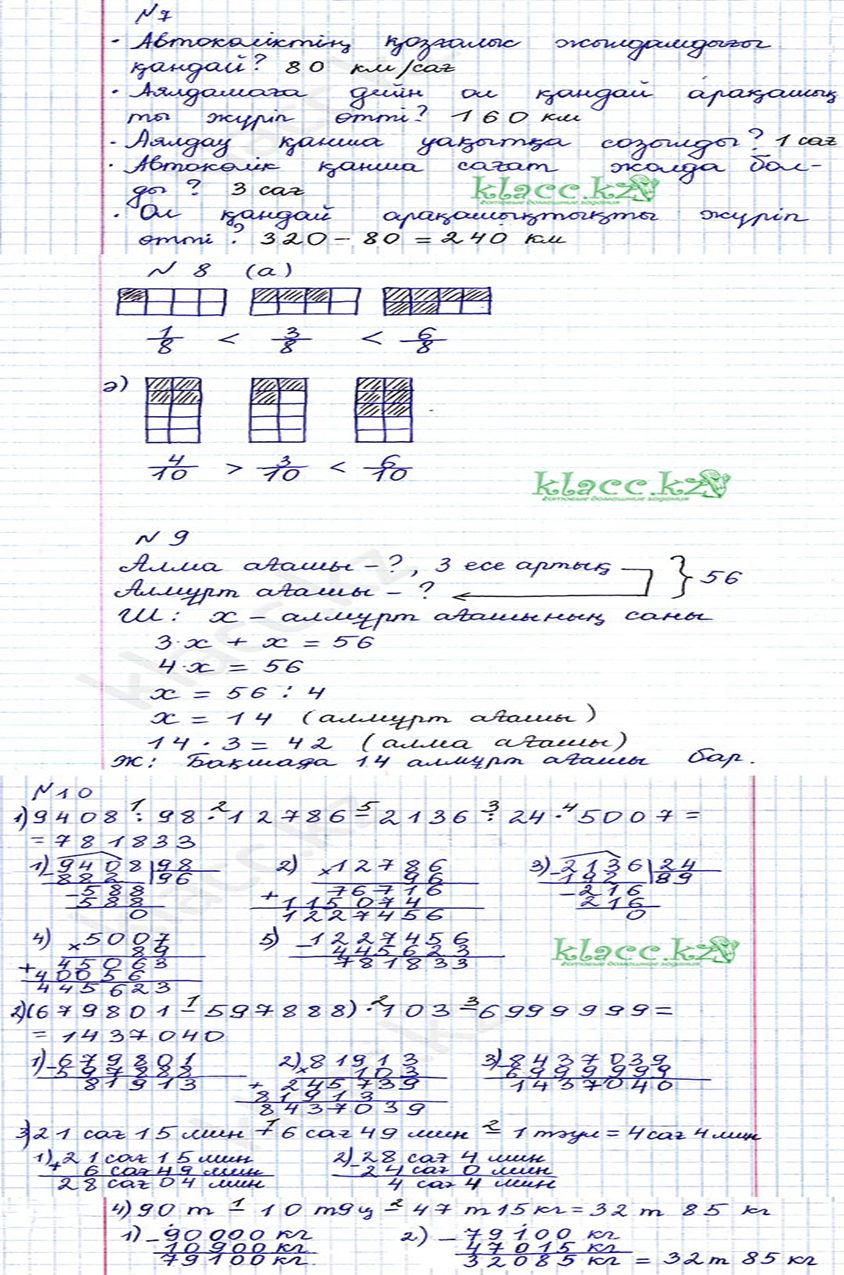 N 7
· Автокөліктің қозғалыс жылдамдығы
қандай? 80 км/сағ
· Аялдамаға дейін ол қандай арақашық
ты жүріп өтті? 160 км
· Аялдау қанша уақытқа созылды? 1 сағ
· Автокөлік қанша сағат жолда бол-
ды? 3 сағ
klacc.kz
готовые домашние задания
· Ол қандай арақашықтықты жүріп
өтті? 320 - 80 = 240 км
N 8 (а)
1/8 < 3/8 < 6/8
ә)
4/10 > 3/10 < 6/10
klacc.kz
готовые домашние задания
N 9
Алма ағашы - ?, 3 есе артық } 56
Алмұрт ағашы - ?
Ш: х - алмұрт ағашының саны
3·х + х = 56
4·х = 56
х = 56 : 4
х = 14 (алмұрт ағашы)
14 · 3 = 42 (алма ағашы)
Ж: Бақшада 14 алмұрт ағашы бар.
N 10
1) 9408 : 98 · 12786 - 2136 : 24 · 5007 =
= 781833
1) 9408 | 98
882 | 96
588
588
0
2) × 12786
96
76716
+ 115074
1227456
3) 2136 | 24
192 | 89
216
216
0
4) × 5007
89
45063
+ 40056
445623
5) - 1227456
445623
781833
klacc.kz
готовые домашние задания
2) (679801 - 597888) · 103 - 6999999 =
= 1437040
1) - 679801
597888
81913
2) × 81913
103
+ 245739
81913
8437039
3) - 8437039
6999999
1437040
3) 21 сағ 15 мин + 6 сағ 49 мин - 1 тәул = 4 сағ 4 мин
1) + 21 сағ 15 мин
6 сағ 49 мин
28 сағ 04 мин
2) - 28 сағ 4 мин
24 сағ 0 мин
4 сағ 4 мин
4) 90 т - 10 т 9 ц - 47 т 15 кг = 32 т 85 кг
1) - 90000 кг
10900 кг
79100 кг.
2) - 79100 кг
47015 кг
32085 кг = 32 т 85 кг